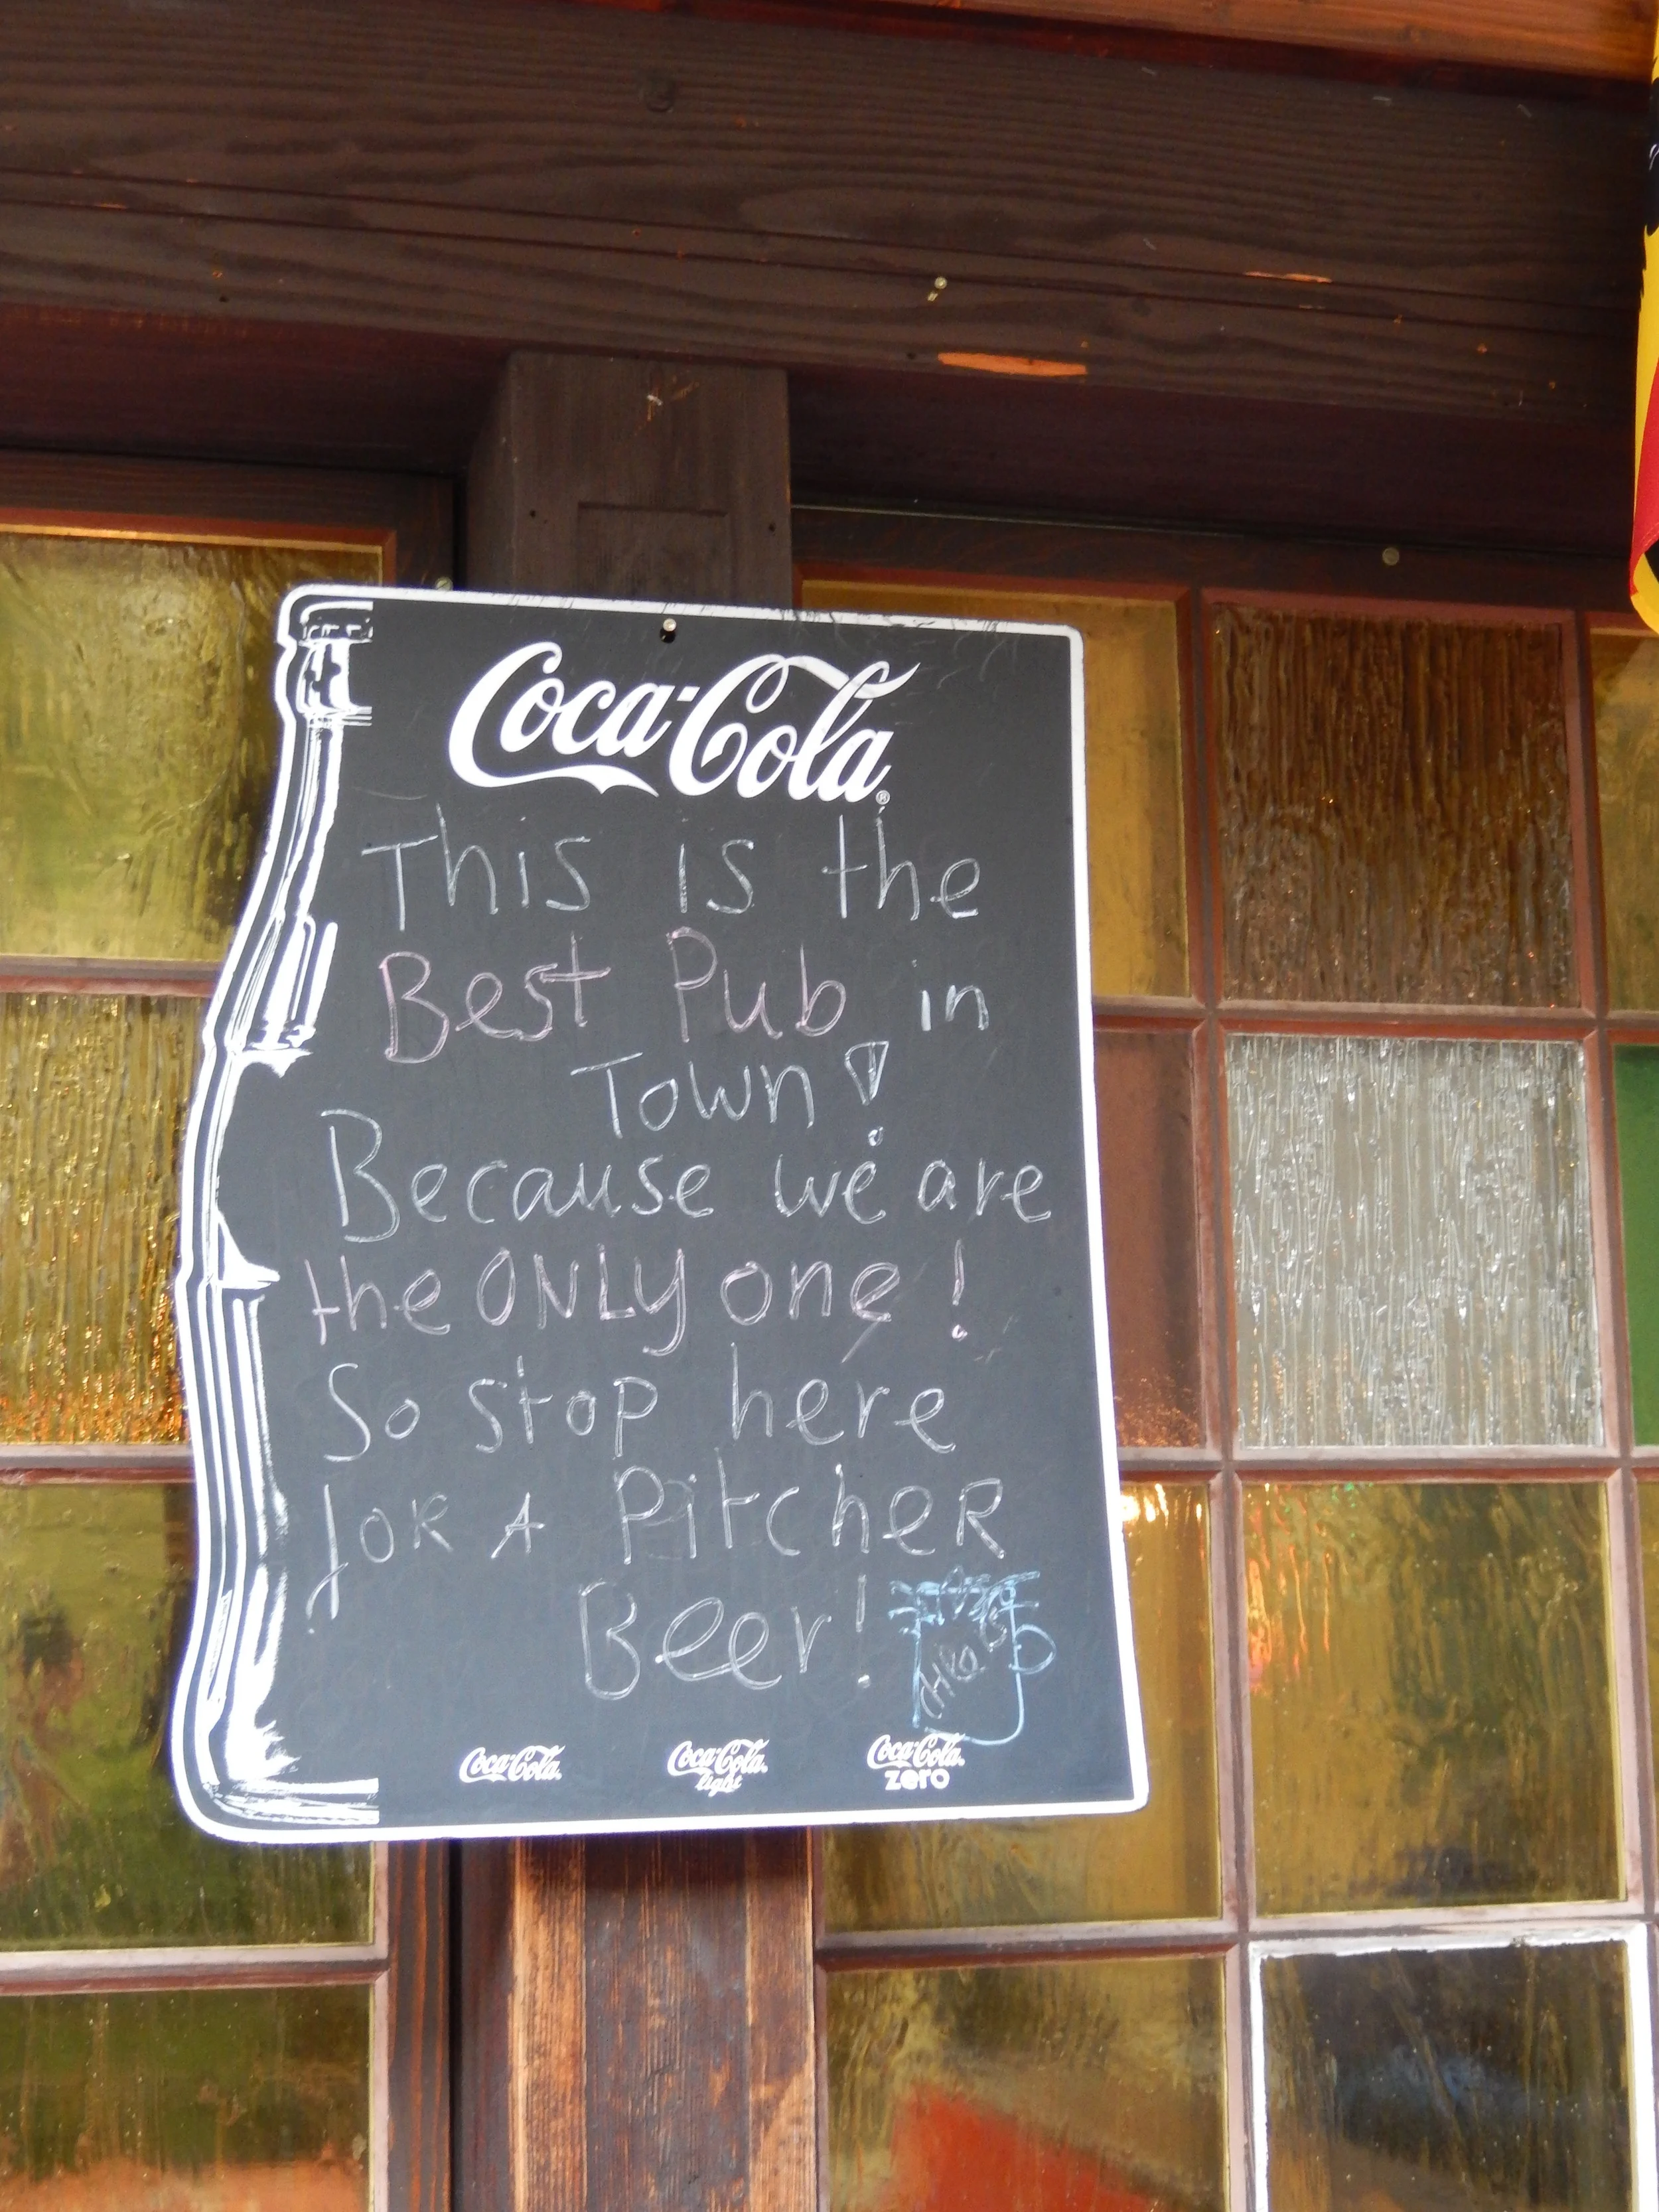 Coca-Cola®
This is the
Best Pub in
Town!
Because we are
the ONLY one!
So stop here
for A PitcheR
Beer!
Coca-Cola Coca-Cola Coca-Cola
light zero